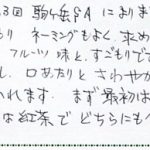 3回 駒ヶ岳SAによります
り ネーミングもよく 求め
フルーツ味と、すごもりで
し、口あたりと さわやか
れます。まず最初は
な紅茶で どちらにも